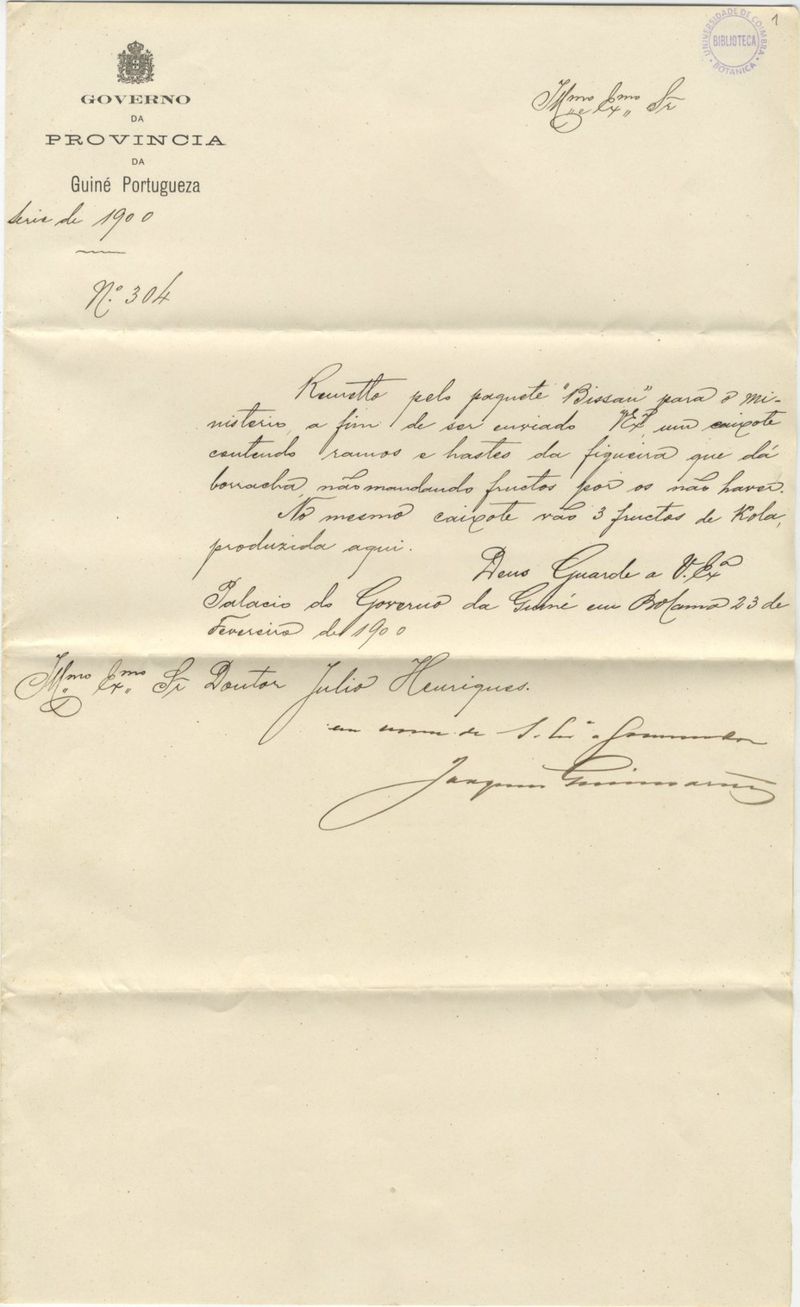 1
UNIVERSIDADE DE COIMBRA
BIBLIOTECA
BOTANICA
GOVERNO
DA
PROVINCIA
DA
Guiné Portugueza
Serie de 1900
N.º 304
Illmo e Exmo Sr
Remetto pelo paquete "Bissau" para o mi-
nisterio, a fim de ser enviado V. Exª, um caixote
contendo ramos e hastes da figueira que dá
borracha, não mandando fructos por os não haver.
No mesmo caixote vão 3 fructos de Kola,
produzida aqui.
Deus Guarde a V. Exª
Palacio do Governo da Guiné em Bolama 23 de
Fevereiro de 1900
Illmo Exmo Sr Doutor Julio Henriques.
em nome de S. Exª o Governador
Joaquim Guimarães